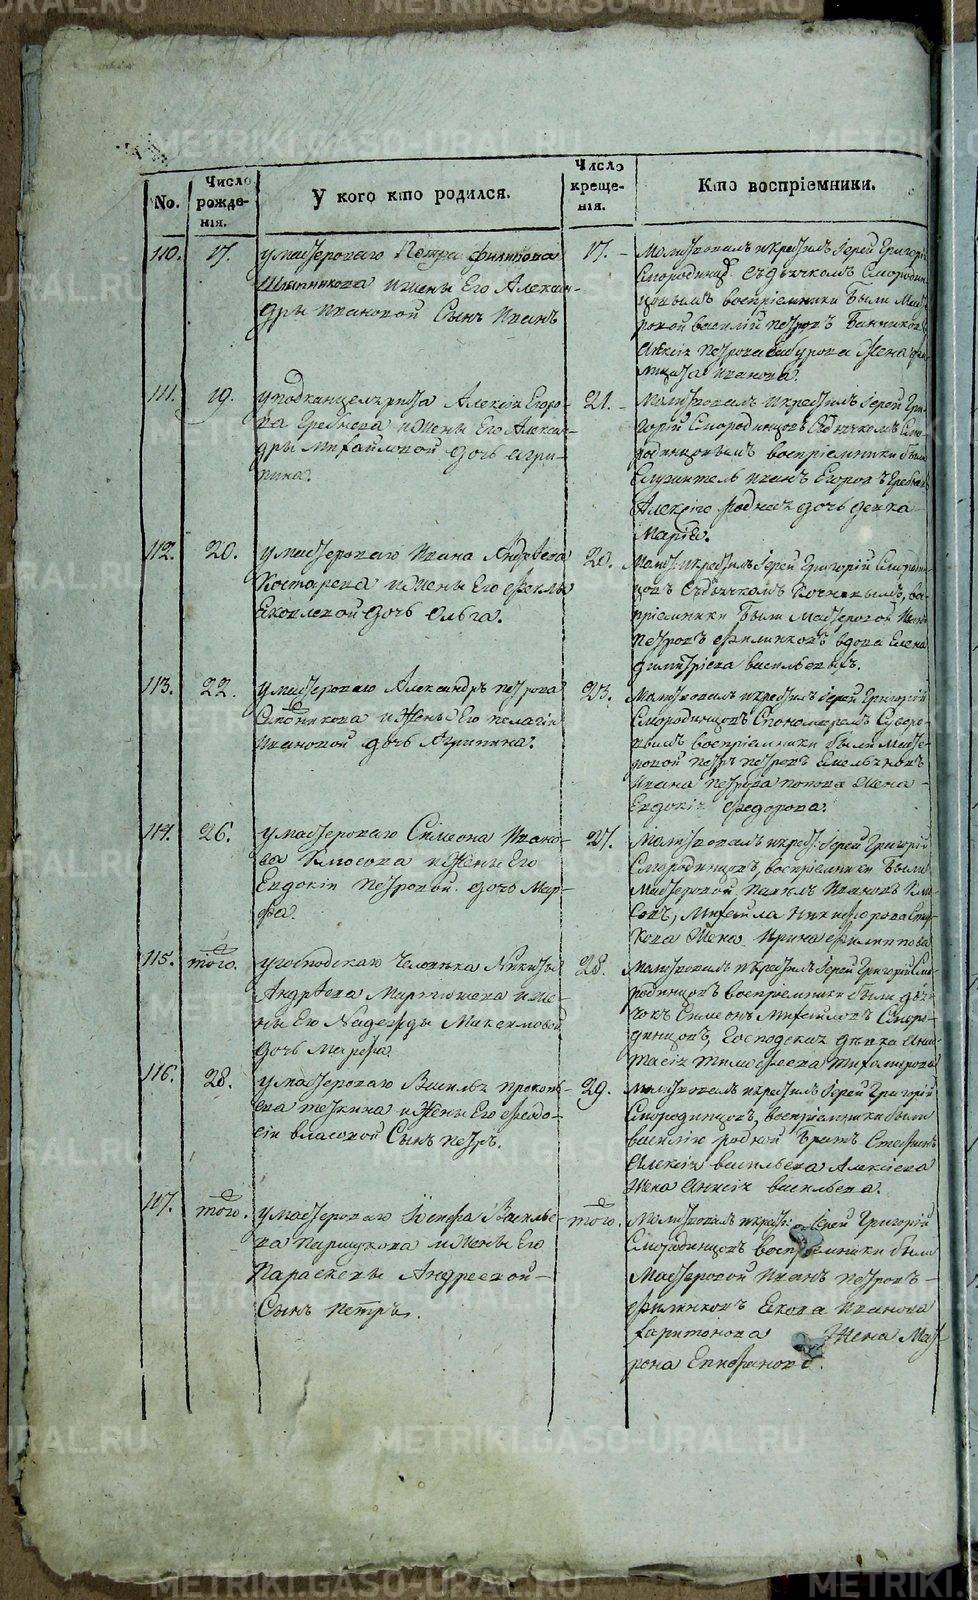 No.
Число рожде-
нія.
У кого кто родился.
Число креще-
нія.
Кто воспріемники.
110.
17.
у мастероваго Петра Филипова
Шляпникова и жены Его Алексан-
дры Ивановой Сынъ Иванъ
17.
Молитвовалъ и крестилъ Іерей Григорій
Смородинц. съ дьячкомъ Смородин-
цовымъ воспріемники были Масте-
ровой василій петровъ
Алексія Петрова жена
Иванова.
111.
19.
у подканцеляриста Алексія Егоро-
ва Гребнева и жены Его Алексан-
дры Михайловой дочь Агри-
пина.
21.
Молитвовалъ и крестилъ Іерей Гри-
горій Смородинцовъ съ дьячкомъ Смо-
родинцовымъ воспріемники были
Служитель иванъ Егоровъ
Алексія дочь девка
Марія.
112.
20.
у мастероваго Ивана Андреева
Костарева и жены Его Феклы
Яковлевой дочь Ольга.
20.
Молит. и крестилъ Іерей Григорій Смородин-
цовъ съ дьячкомъ вос-
пріемники были Мастеровой Иванъ
петровъ Филинковъ вдова Елена
димитріева васильевыхъ.
113.
22.
у мастероваго Александръ петрова
и жены Его пелагіи
Ивановой дочь Агрипина.
23.
Молитвовалъ и крестилъ Іерей Григорій
Смородинцовъ Спономаремъ Суворо-
вымъ воспріемники были Масте-
ровой петръ петровъ
Ивана петрова попова жена
Евдокія Федорова.
114.
26.
у мастероваго Симеона Ивано-
ва Власова и жены Его
Евдокіи петровой дочь Мар-
фа.
27.
Молитвовалъ и крест: Іерей Григорій
Смородинцовъ, воспріемники были
Мастеровой павелъ Ивановъ
Михаила Никифорова
жена Ирина Филиппова
115.
того.
у господскаго Человека Никиты
Андреева и же-
ны Его Надежды Максимовой
дочь Марфа
28.
Молитвовалъ и крестилъ Іерей Григорій Смо-
родинцовъ воспріемники были дья-
чокъ Симеонъ Михайловъ Сморо-
динцовъ, Господская девка Анас-
тасія тимофеева тихомирова
116.
28.
у мастероваго Василья прокопь-
ева и жены Его Федо-
сіи власовой Сынъ петръ.
29.
молитвовалъ и крестилъ Іерей Григорій
Смородинцовъ, воспріемники были
василію родной братъ Стефанъ
Алексія васильева Алексіева
жена Анисія васильева.
117.
того.
у мастероваго Іосифа Василье-
ва Паршукова и жены Его
Параскевы Андреевой
Сынъ петръ.
того.
Молитвовалъ и крест: Іерей Григорій
Смородинцовъ воспріемники были
Мастеровой Иванъ петровъ
Филинковъ Якова Иванова
харитонова жена Мат-
рона Епифанова.